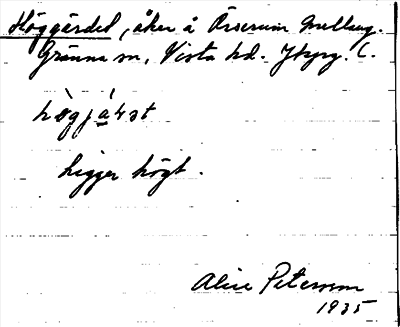 Höggärdet, åker å Örserum Mellang.
Gränna sn, Vista hd. Jkpg. L.
hö̀gjá̱rat
Ligger högt.
Alice Petersson
1935